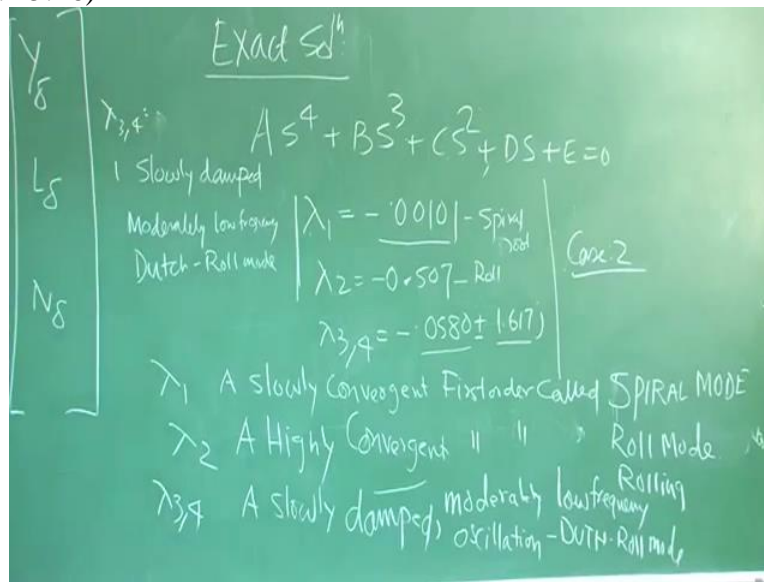 Exact Solⁿ:
Yδ
Lδ
Nδ
λ3,4:
As⁴ + Bs³ + Cs² + Ds + E = 0
1 Slowly damped
Moderately low frequency
Dutch-Roll mode
λ1 = - .00101 - Spiral
λ2 = -0.507 - Roll
λ3,4 = - .0580 ± 1.617j
Case.2
λ1 A slowly Convergent First order Called SPIRAL MODE
λ2 A Highly Convergent " " " Roll Mode
Rolling
λ3,4 A slowly damped, moderably low frequency
oscillation - DUTH-Roll mode